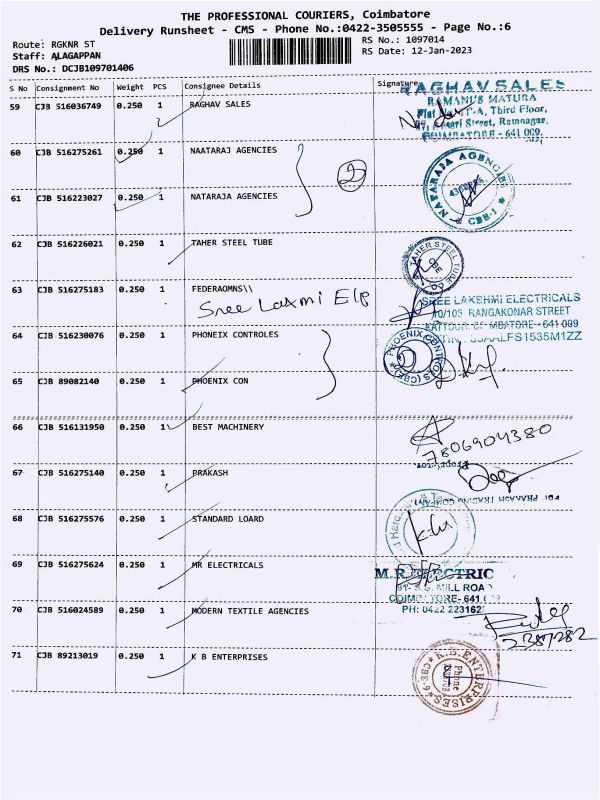 THE PROFESSIONAL COURIERS, Coimbatore
Delivery Runsheet - CMS - Phone No.:0422-3505555 - Page No.:6
Route: RGKNR ST
RS No.: 1097014
Staff: ALAGAPPAN
RS Date: 12-Jan-2023
DRS No.: DCJB109701406
S No Consignment No Weight PCS Consignee Details Signature
59 CJB 516036749 0.250 1 RAGHAV SALES
RAGHAV SALES
RAMANI'S MATURA
Third Floor,
Street, Ramnagar,
COIMBATORE - 641 009.
60 CJB 516275261 0.250 1 NAATARAJ AGENCIES
2
61 CJB 516223027 0.250 1 NATARAJA AGENCIES
NATARAJA AGENCIES
CBE-1
62 CJB 516226021 0.250 1 TAHER STEEL TUBE
TAHER STEEL TUBE
63 CJB 516275183 0.250 1 FEDERAOMNS\\
Sree Laxmi Elp
SREE LAKSHMI ELECTRICALS
10/105 RANGAKONAR STREET
MBATORE - 641 009
AALFS1535M1ZZ
64 CJB 516230076 0.250 1 PHONEIX CONTROLES
PHOENIX CONTROLS (CBE)
65 CJB 89082140 0.250 1 PHOENIX CON
66 CJB 516131950 0.250 1 BEST MACHINERY
7806904380
Proprietor
67 CJB 516275140 0.250 1 PRAKASH
For PRAKASH TRADING COMPANY
68 CJB 516275576 0.250 1 STANDARD LOARD
69 CJB 516275624 0.250 1 MR ELECTRICALS
M.R. ELECTRIC
MILL ROAD
COIMBATORE- 641
PH: 0422 223162
70 CJB 516024589 0.250 1 MODERN TEXTILE AGENCIES
2387282
71 CJB 89213019 0.250 1 K B ENTERPRISES
K.B. ENTERPRISES
Phone
CBE-6